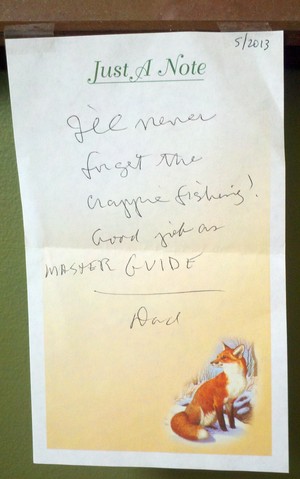 5/2013
Just A Note
I'll never
forget the
crappie fishing!
Good job as
MASTER GUIDE
Dad